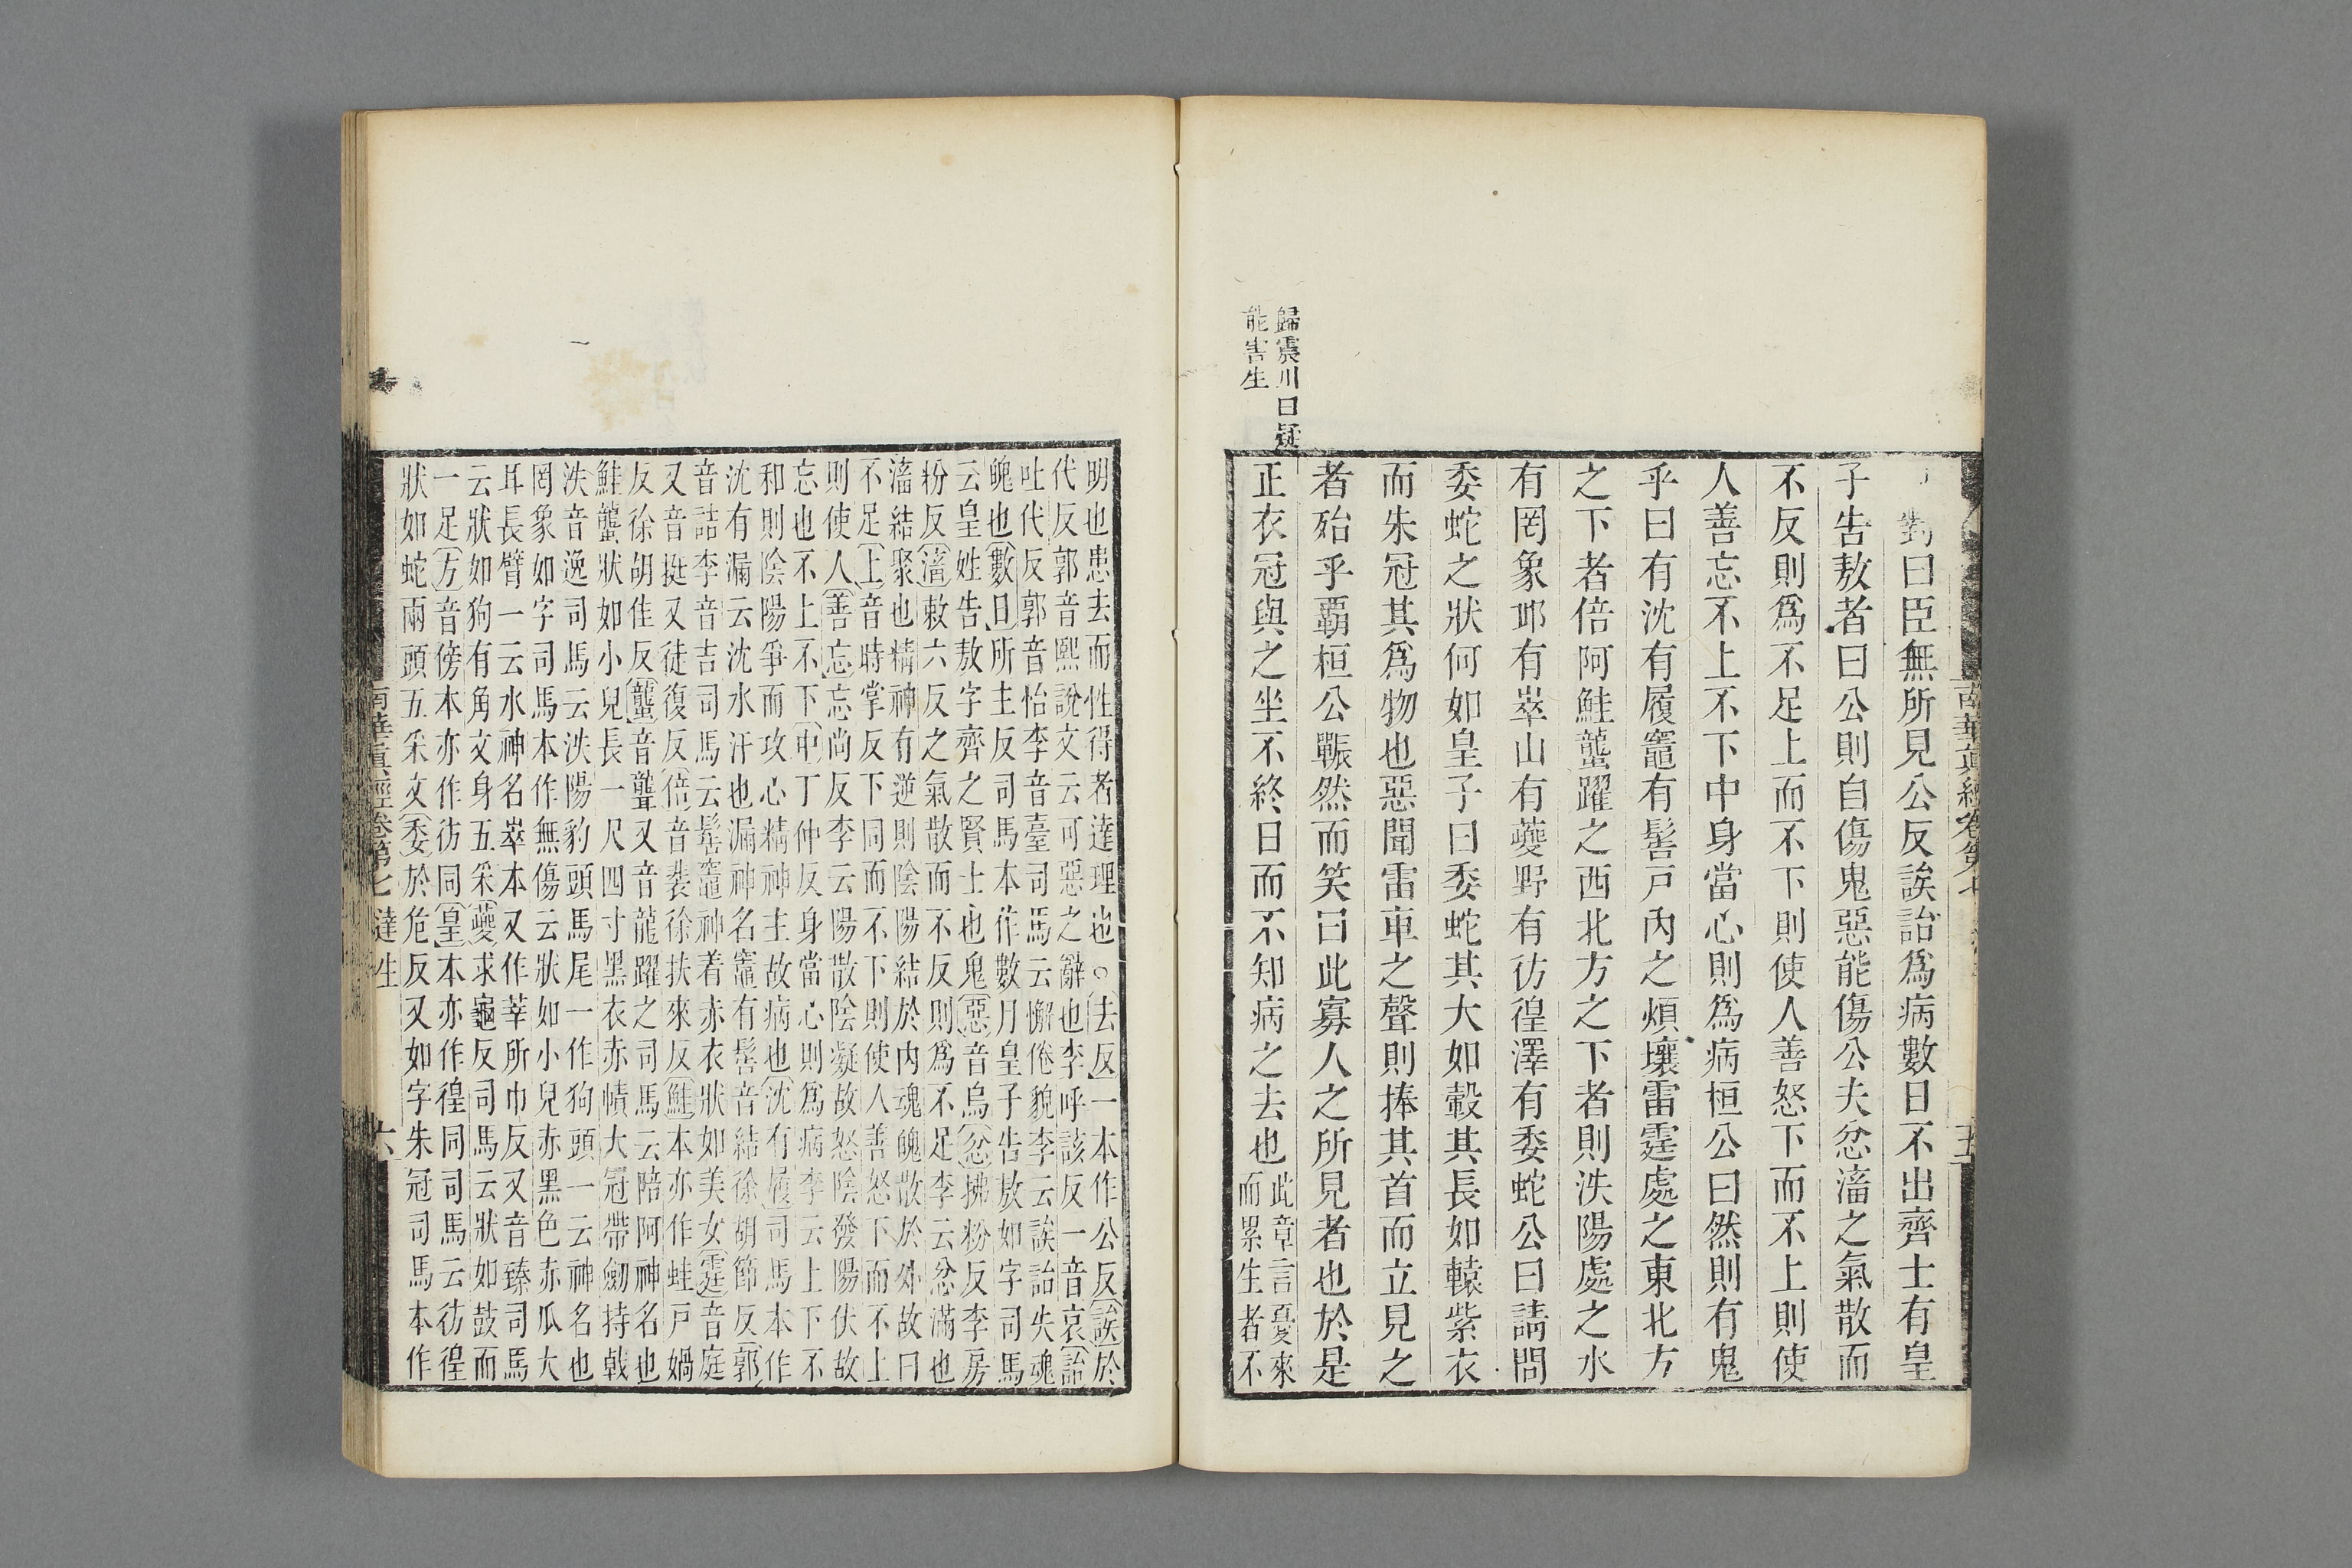 對曰臣無所見公反誒詒爲病數日不出齊士有皇
子告敖者曰公則自傷鬼惡能傷公夫忿滀之氣散而
不反則爲不足上而不下則使人善怒下而不上則使
人善忘不上不下中身當心則爲病桓公曰然則有鬼
乎曰有沈有履竈有髻戶內之煩壤雷霆處之東北方
之下者倍阿鮭蠪躍之西北方之下者則泆陽處之水
有罔象邱有峷山有夔野有彷徨澤有委蛇公曰請問
委蛇之狀何如皇子曰委蛇其大如轂其長如轅紫衣
而朱冠其爲物也惡聞雷車之聲則捧其首而立見之
者殆乎霸桓公辴然而笑曰此寡人之所見者也於是
正衣冠與之坐不終日而不知病之去也此章言憂來
而累生者不
歸震川曰疑
能害生
南華眞經卷第七
五
明也患去而性得者達理也○去反一本作公反誒於
代反郭音熙說文云可惡之辭也李呼該反一音哀詒
吐代反郭音怡李音臺司馬云懈倦貌李云誒詒失魂
魄也數日所主反司馬本作數月皇子告敖如字司馬
云皇姓告敖字齊之賢士也鬼惡音烏忿拂粉反李房
粉反滀敕六反之氣散而不反則爲不足李云忿滿也
滀結聚也精神有逆則陰陽結於內魂魄散於外故曰
不足上音時掌反下同而不下則使人善怒下而不上
則使人善忘忘尚反李云陽散陰凝故怒陰發陽伏故
忘也不上不下中丁仲反身當心則爲病李云上下不
和則陰陽爭而攻心精神主故病也沈有履司馬本作
沈有漏云沈水汙也漏神名竈有髻音結徐胡節反郭
音詰李音吉司馬云髻竈神着赤衣狀如美女霆音庭
又音挺又徒復反倍音裴徐扶來反鮭本亦作蛙戶媧
反徐胡佳反蠪音聾又音龍躍之司馬云陪阿神名也
鮭蠪狀如小兒長一尺四寸黑衣赤幘大冠帶劒持戟
泆音逸司馬云泆陽豹頭馬尾一作狗頭一云神名也
罔象如字司馬本作無傷云狀如小兒赤黑色赤瓜大
耳長臂一云水神名峷本又作莘所巾反又音臻司馬
云狀如狗有角文身五采夔求龜反司馬云狀如鼓而
一足方音傍本亦作彷同皇本亦作徨同司馬云彷徨
狀如蛇兩頭五采文委於危反又如字朱冠司馬本作
南華眞經卷第七 達生 六